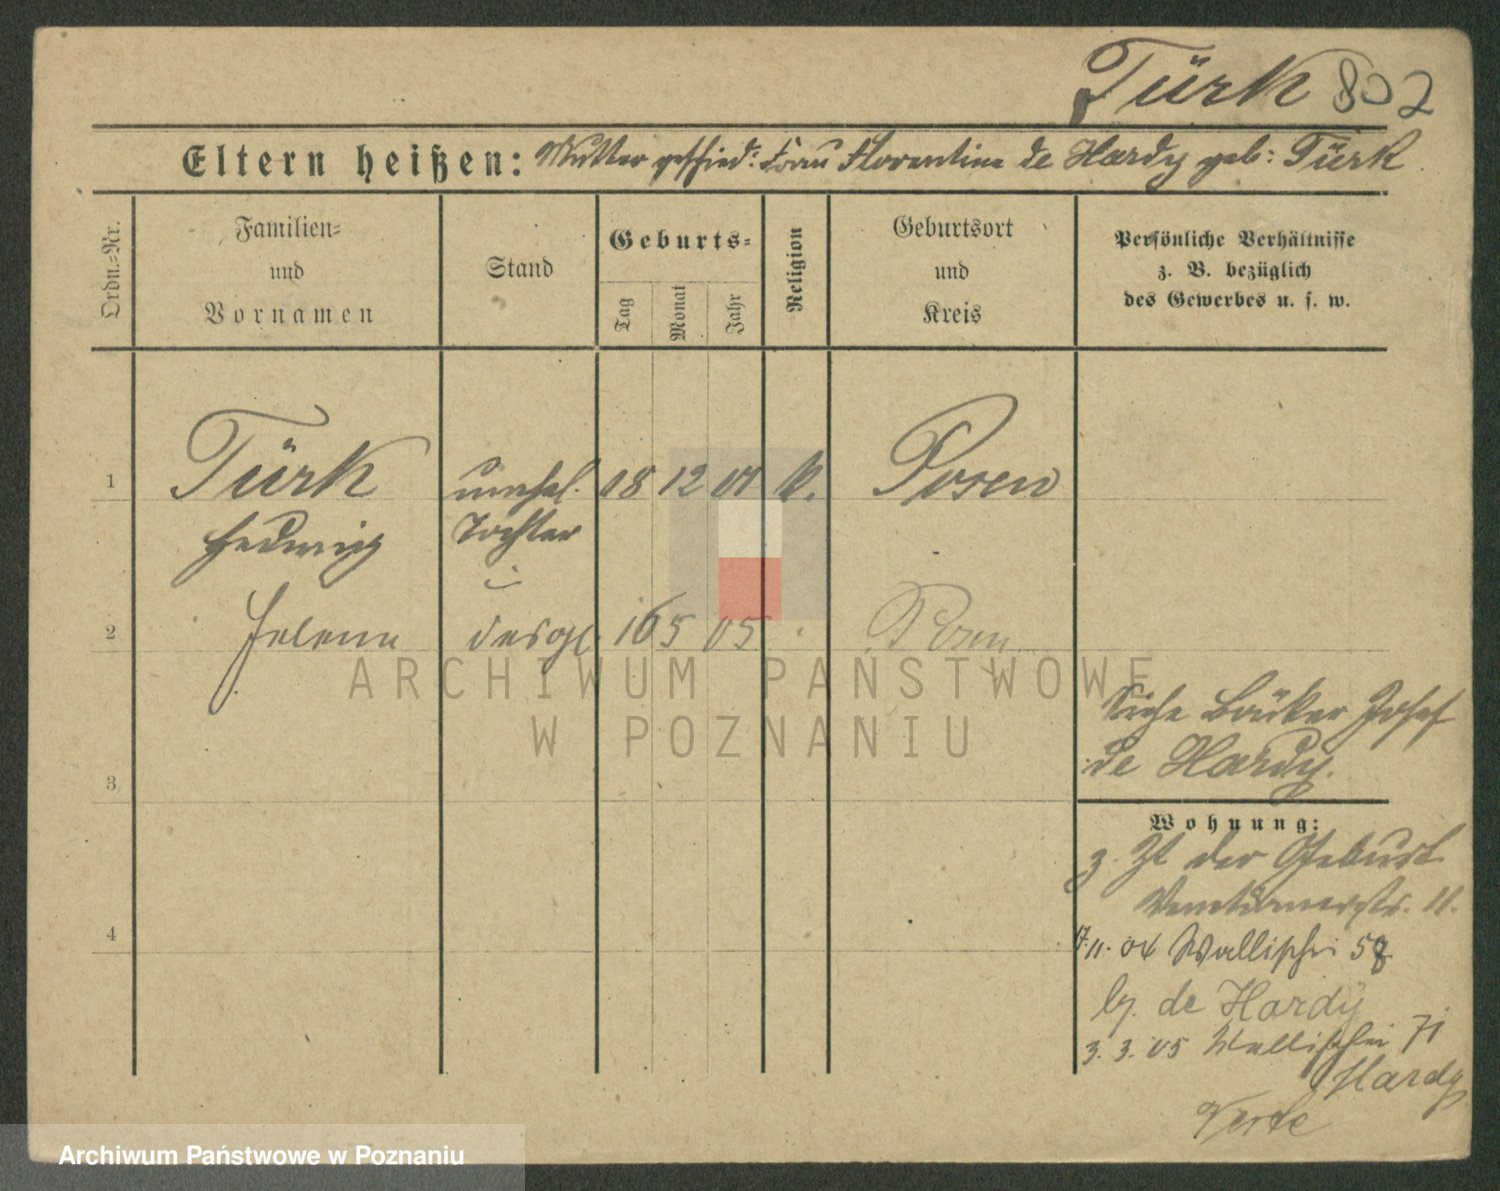 Türk 802
Eltern heißen: Mutter geschied: Frau Florentine de Hardy geb: Türk
Ordn.=Nr.
Familien=
und
Vornamen
Stand
Geburts=
Tag
Monat
Jahr
Religion
Geburtsort
und
Kreis
Persönliche Verhältnisse
z. B. bezüglich
des Gewerbes u. s. w.
1 Türk unehel. 18 12 01 k. Posen
Hedwig Tochter
2 Helene desgl. 16 5 05 Posen
ARCHIWUM PAŃSTWOWE
W POZNANIU
Siehe Bäcker Josef
de Hardy.
3
Wohnung:
z. Zt der Geburt
Venetianerstr. 11.
4
17.11. 04 Wallischei
de Hardy
3. 3. 05 Wallischei 71
Hardy
Verte
Archiwum Państwowe w Poznaniu